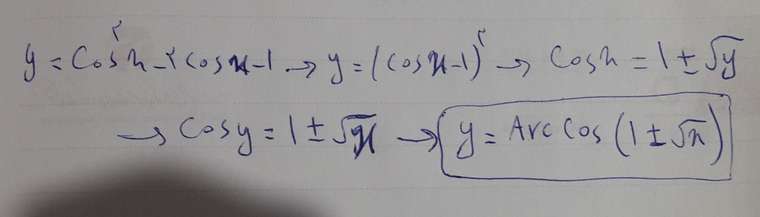 y = Cos²x - ۲cosx - 1 → y = (cosx - 1)² → Cosx = 1 ± √y
→ Cosy = 1 ± √x → y = Arc Cos (1 ± √x)